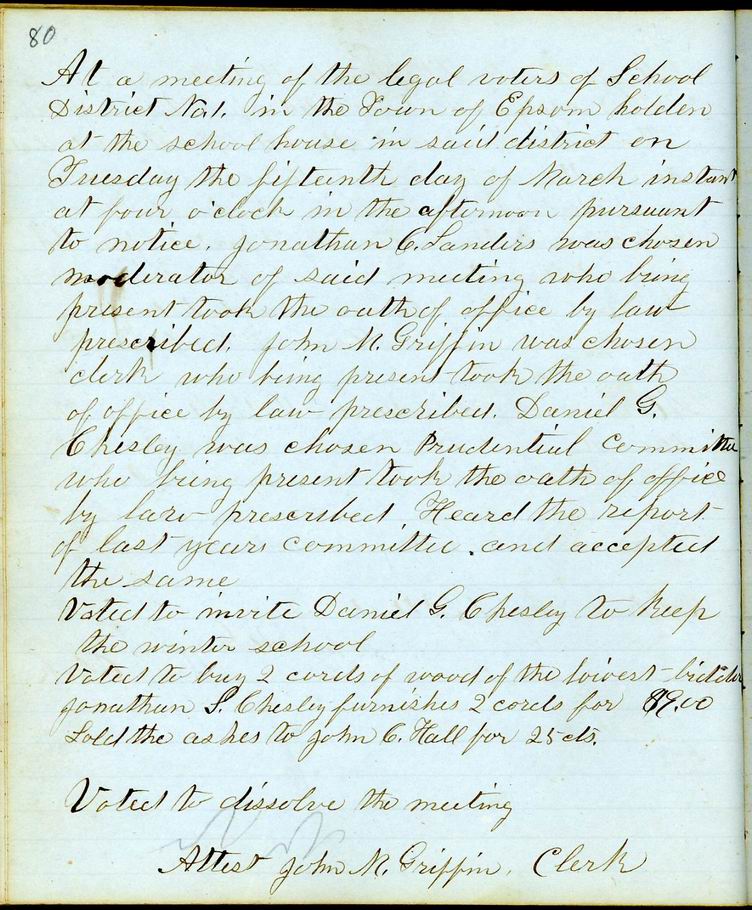 80
At a meeting of the legal voters of School
District No.1. in the Town of Epsom holden
at the school house in said district on
Tuesday the fifteenth day of March instant
at four o'clock in the afternoon pursuant
to notice. Jonathan C. Sanders was chosen
moderator of said meeting who being
present took the oath of office by law
prescribed. John M. Griffin was chosen
clerk who being present took the oath
of office by law prescribed. Daniel G.
Chesley was chosen Prudential Committee
who being present took the oath of office
by law prescribed Heard the report
of last years committee and accepted
the same
Voted to invite Daniel G. Chesley to keep
the winter school
Voted to buy 2 cords of wood of the lowest bidder
Jonathan S. Chesley furnishes 2 cords for $9.00
Sold the ashes to John C. Hall for 25 cts.
Voted to dissolve the meeting
Attest John M. Griffin, Clerk